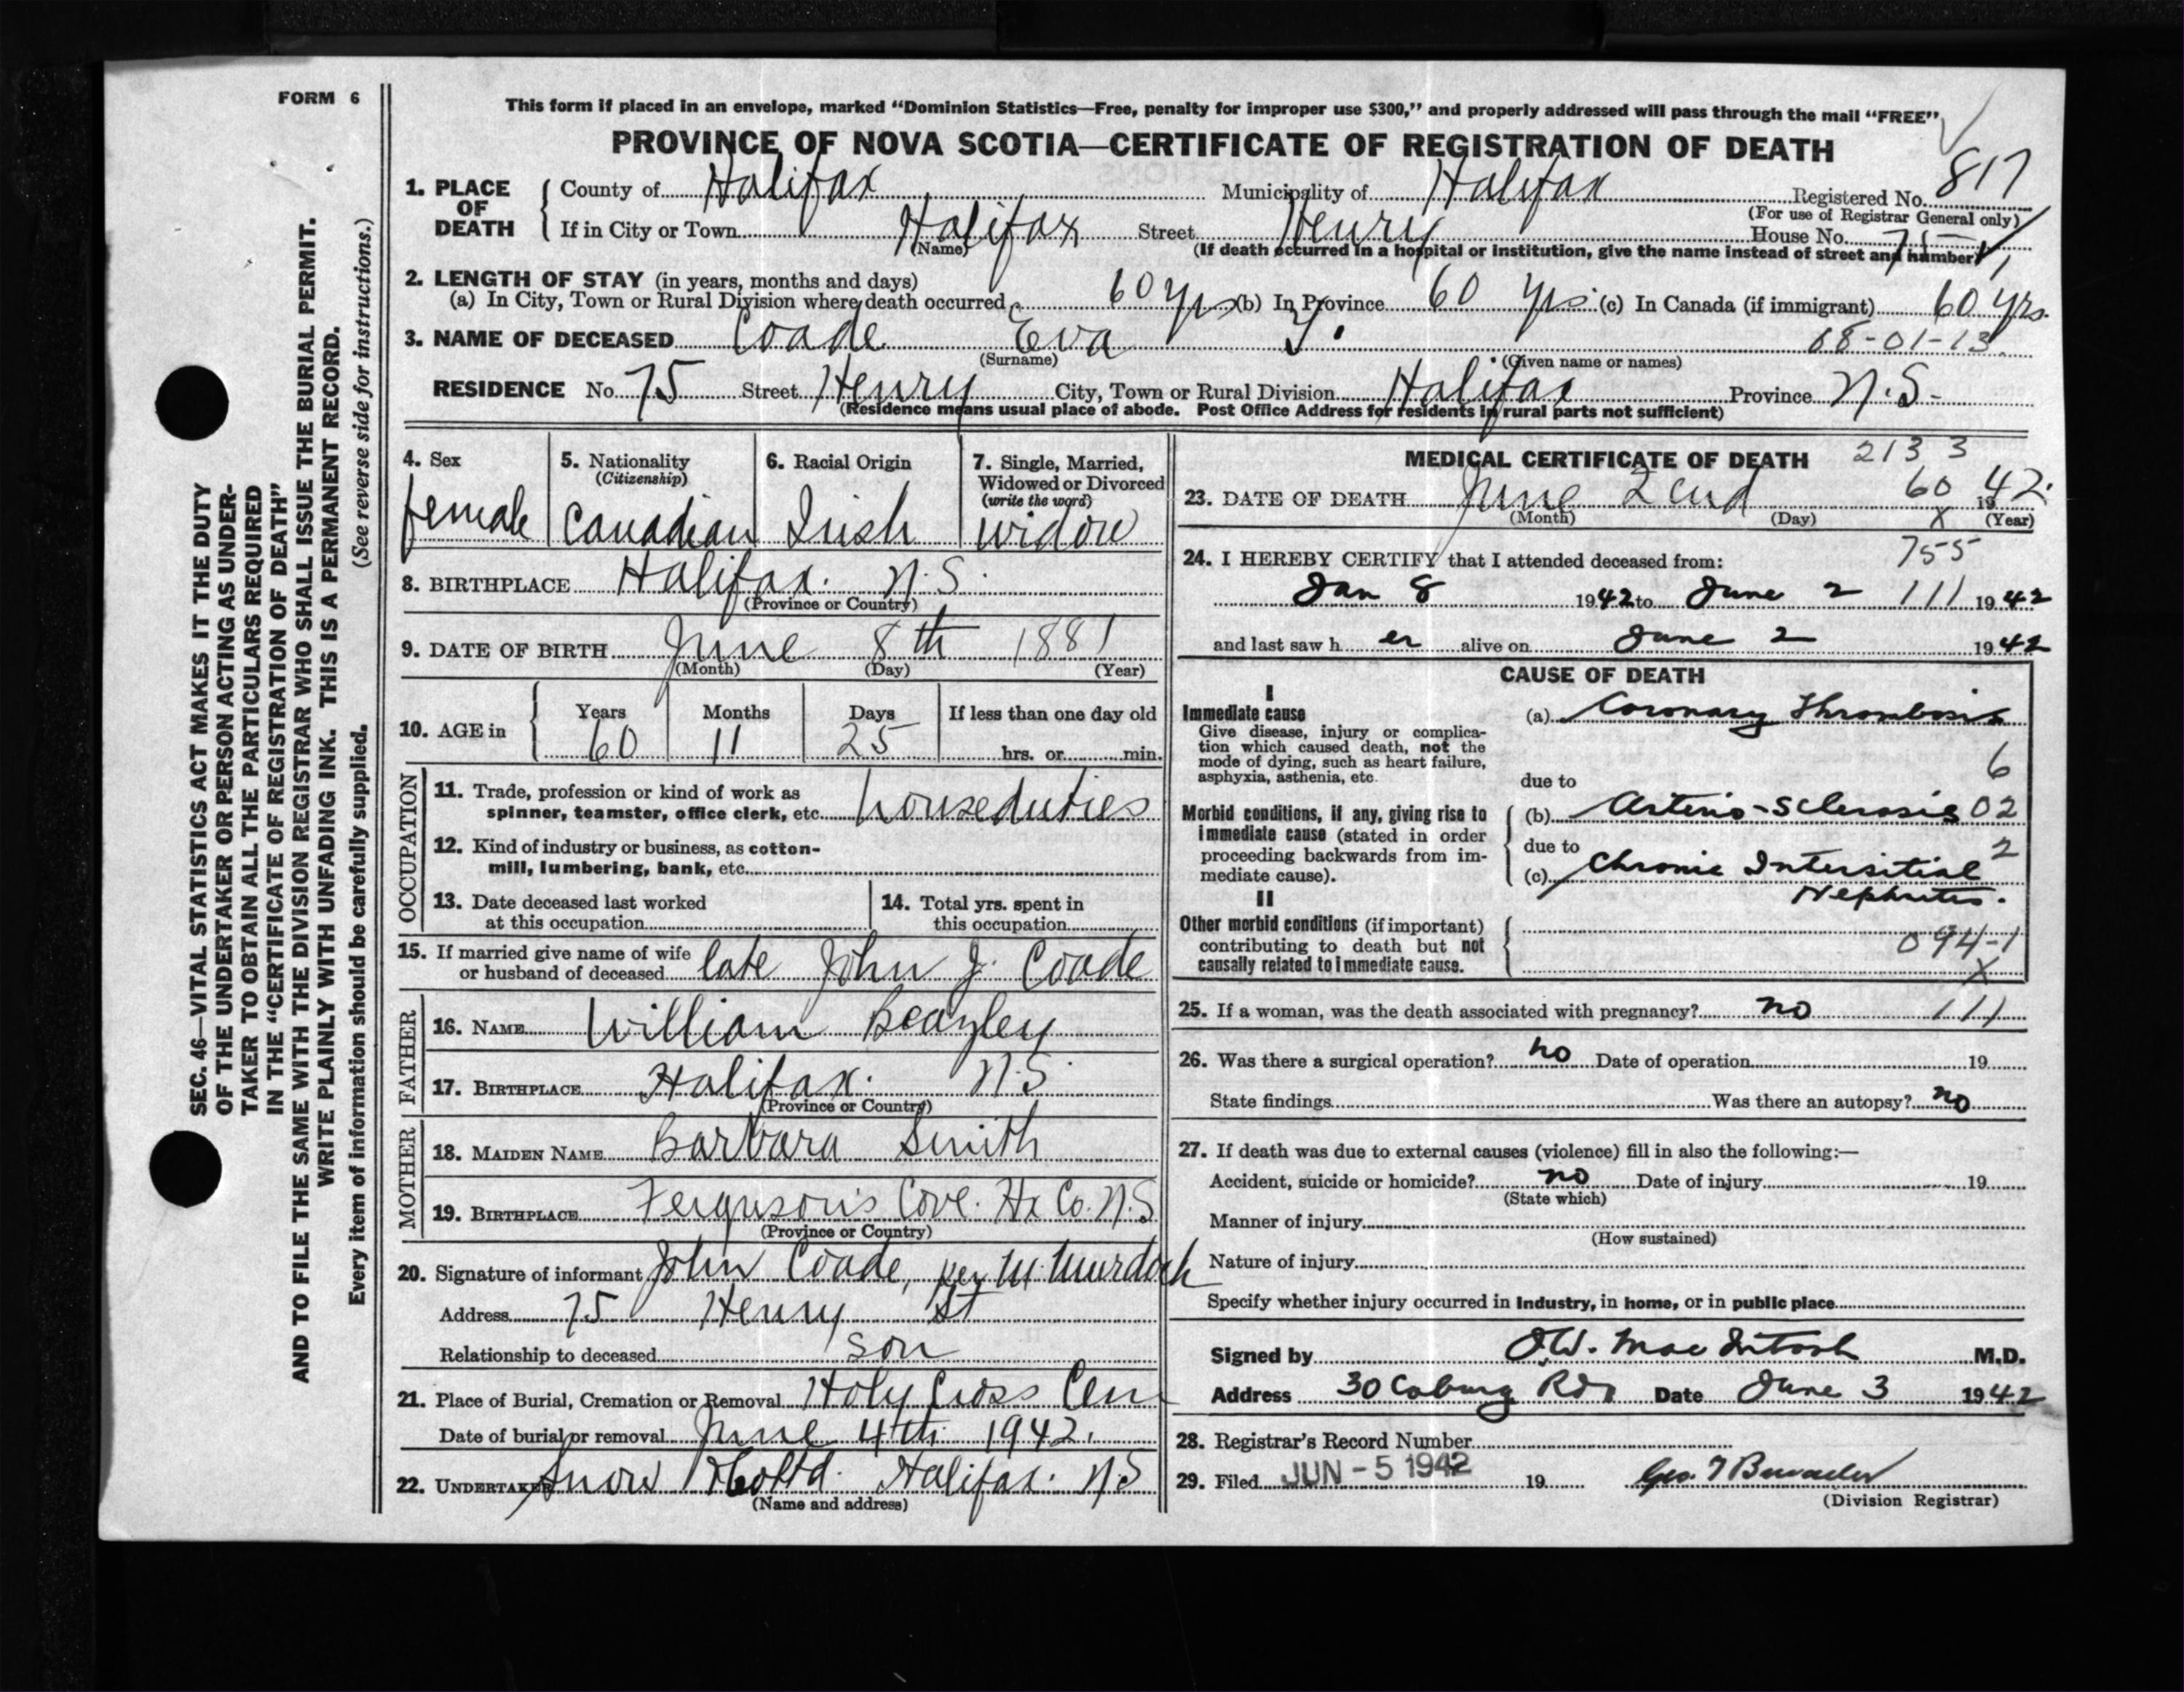 FORM 6
SEC. 46—VITAL STATISTICS ACT MAKES IT THE DUTY
OF THE UNDERTAKER OR PERSON ACTING AS UNDER-
TAKER TO OBTAIN ALL THE PARTICULARS REQUIRED
IN THE "CERTIFICATE OF REGISTRATION OF DEATH"
AND TO FILE THE SAME WITH THE DIVISION REGISTRAR WHO SHALL ISSUE THE BURIAL PERMIT.
WRITE PLAINLY WITH UNFADING INK. THIS IS A PERMANENT RECORD.
Every item of information should be carefully supplied. (See reverse side for instructions.)
This form if placed in an envelope, marked "Dominion Statistics—Free, penalty for improper use $300," and properly addressed will pass through the mail "FREE"
PROVINCE OF NOVA SCOTIA—CERTIFICATE OF REGISTRATION OF DEATH
1. PLACE OF DEATH County of Halifax Municipality of Halifax Registered No. 817
(For use of Registrar General only)
If in City or Town Halifax Street Henry House No. 75
(Name) (If death occurred in a hospital or institution, give the name instead of street and number)
2. LENGTH OF STAY (in years, months and days)
(a) In City, Town or Rural Division where death occurred 60 yrs (b) In Province 60 yrs. (c) In Canada (if immigrant) 60 yrs.
3. NAME OF DECEASED Coade Eva 68-01-13
(Surname) (Given name or names)
RESIDENCE No. 75 Street Henry City, Town or Rural Division Halifax Province N.S.
(Residence means usual place of abode. Post Office Address for residents in rural parts not sufficient)
4. Sex female
5. Nationality (Citizenship) Canadian
6. Racial Origin Irish
7. Single, Married, Widowed or Divorced (write the word) widow
8. BIRTHPLACE Halifax. N.S.
(Province or Country)
9. DATE OF BIRTH June 8th 1881
(Month) (Day) (Year)
10. AGE in Years 60 Months 11 Days 25 If less than one day old
hrs. or min.
OCCUPATION
11. Trade, profession or kind of work as
spinner, teamster, office clerk, etc. houseduties
12. Kind of industry or business, as cotton-
mill, lumbering, bank, etc.
13. Date deceased last worked
at this occupation
14. Total yrs. spent in
this occupation
15. If married give name of wife
or husband of deceased late John J. Coade
FATHER
16. NAME William Beazley
17. BIRTHPLACE Halifax. N.S.
(Province or Country)
MOTHER
18. MAIDEN NAME Barbara Smith
19. BIRTHPLACE Ferguson's Cove. Hx Co. N.S
(Province or Country)
20. Signature of informant John Coade, per M. Murdoch
Address 75 Henry St
Relationship to deceased son
21. Place of Burial, Cremation or Removal Holy Cross Cem
Date of burial or removal June 4th 1942.
22. UNDERTAKER Snow & Co Ltd. Halifax. N.S
(Name and address)
MEDICAL CERTIFICATE OF DEATH 2133
23. DATE OF DEATH June 2end 60 1942.
(Month) (Day) X (Year)
24. I HEREBY CERTIFY that I attended deceased from: 755
Jan 8 1942 to June 2 111 1942
and last saw her alive on June 2 1942
CAUSE OF DEATH
I
Immediate cause
Give disease, injury or complica-
tion which caused death, not the
mode of dying, such as heart failure,
asphyxia, asthenia, etc.
(a) Coronary Thrombosis
6
due to
Morbid conditions, if any, giving rise to
immediate cause (stated in order
proceeding backwards from im-
mediate cause).
(b) Arterio-sclerosis 02
due to 2
(c) Chronic Intersitial
Nephritis.
II
Other morbid conditions (if important)
contributing to death but not
causally related to immediate cause.
094-1
X
25. If a woman, was the death associated with pregnancy? no 111
26. Was there a surgical operation? no Date of operation 19
State findings Was there an autopsy? no
27. If death was due to external causes (violence) fill in also the following:—
Accident, suicide or homicide? no Date of injury 19
(State which)
Manner of injury
(How sustained)
Nature of injury
Specify whether injury occurred in industry, in home, or in public place
Signed by J.W. MacIntosh M.D.
Address 30 Coburg Rd. Date June 3 1942
28. Registrar's Record Number
29. Filed JUN - 5 1942 19
(Division Registrar)